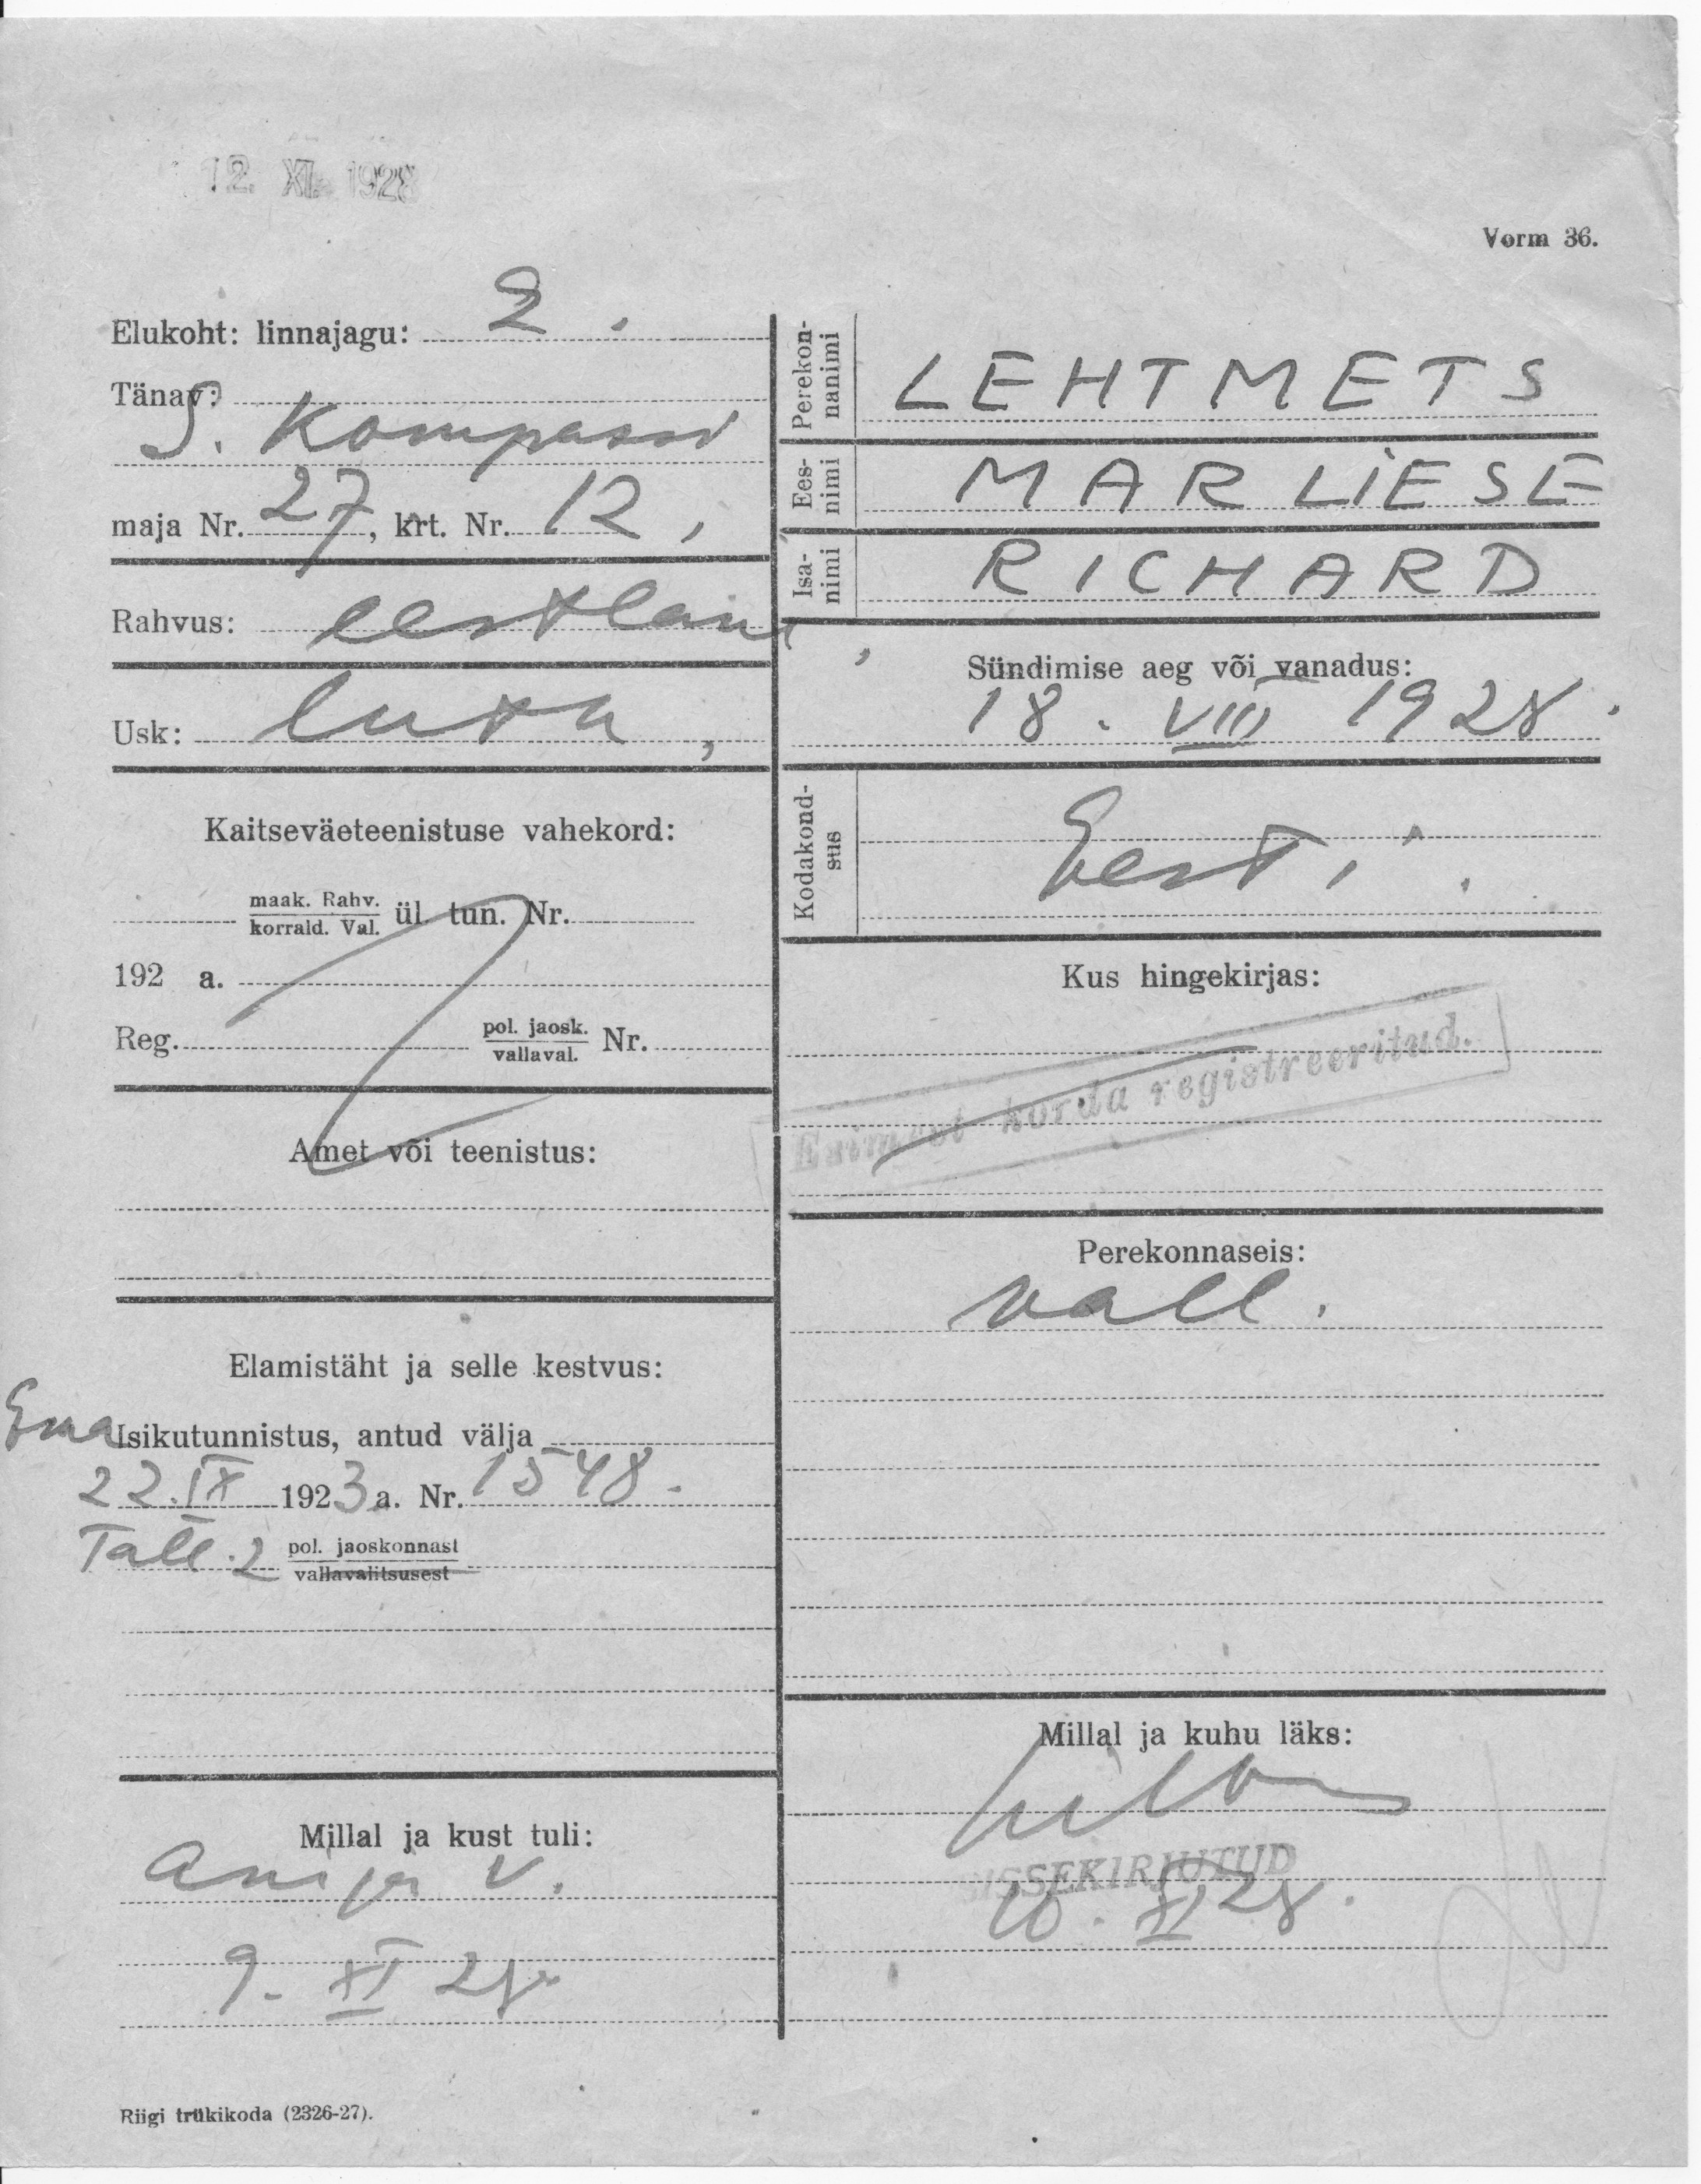 12. XI. 1928
Vorm 36.
Elukoht: linnajagu: 2.
Tänav:
S. Kompassi
maja Nr. 27, krt. Nr. 12,
Rahvus: eestlane,
Usk: luta,
Kaitseväeteenistuse vahekord:
maak. Rahv.
korrald. Val. ül. tun. Nr.
192 a.
Reg. pol. jaosk. Nr.
vallaval.
Amet või teenistus:
Elamistäht ja selle kestvus:
Ema Isikutunnistus, antud välja
22. IX 1923 a. Nr. 1548.
Tall. 2 pol. jaoskonnast
vallavalitsusest
Millal ja kust tuli:
Anija v.
9. XI 28
Riigi trükikoda (2326-27).
Perekon-
nanimi
LEHTMETS
Ees-
nimi
MARLIESE
Isa-
nimi
RICHARD
Sündimise aeg või vanadus:
18. VIII 1928.
Kodakond-
sus
Eesti.
Kus hingekirjas:
Esimest korda registreeritud.
Perekonnaseis:
vall.
Millal ja kuhu läks:
SISSEKIRJUTUD
10. XI 28.